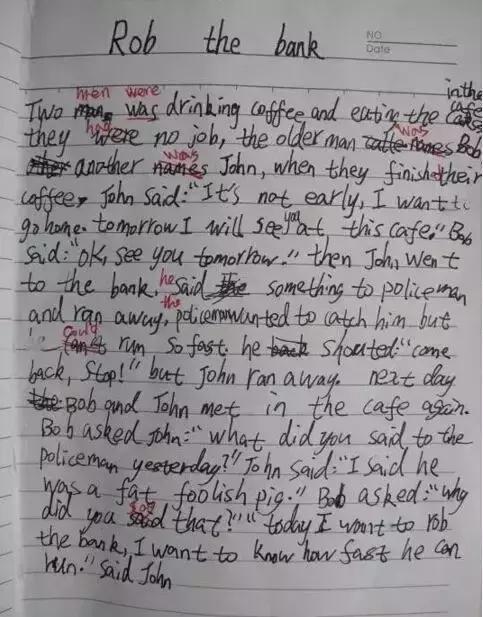 Rob the bank
NO
Date
in the
men were cafe
Two man was drinking coffee and eating the cakes
had was
they were no job, the older man names Bob
was
another names John, when they finished their
coffee, John said: "It's not early, I want to
you
go home. tomorrow I will see at this cafe." Bob
said: "OK, see you tomorrow." then John went
he
to the bank. said the something to policeman
the
and ran away, policeman wanted to catch him but
could
can't run so fast. he back shouted: "come
back, Stop!" but John ran away. next day
the Bob and John met in the cafe again.
Bob asked John: "what did you said to the
policeman yesterday?" John said: "I said he
was a fat foolish pig." Bob asked: "why
say
did you said that?" "today I want to rob
the bank, I want to know how fast he can
run." said John